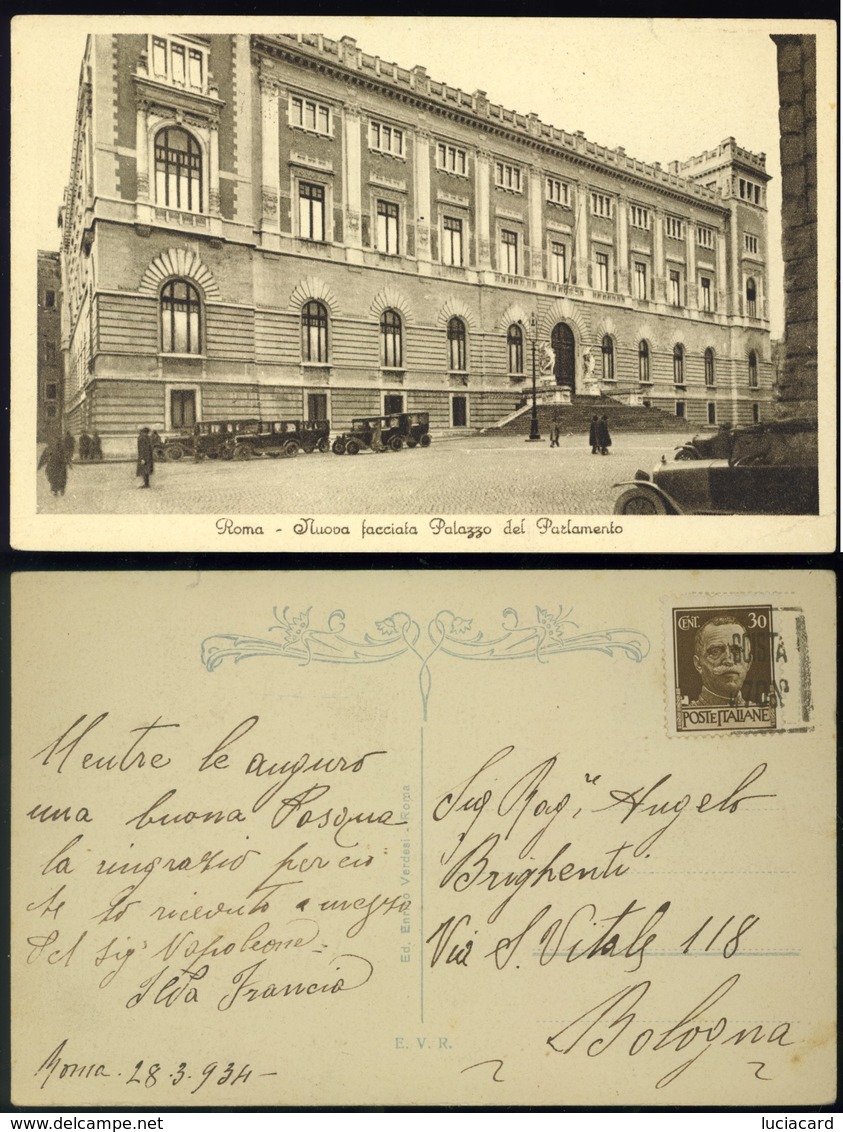 Roma - Nuova facciata Palazzo del Parlamento
CENT. 30
POSTE ITALIANE
Mentre le auguro
una buona Pasqua
la ringrazio per ciò
che ho ricevuto a mezzo
del Sigr Napoleone
Ilda Francia
Roma. 28.3.934-
Ed. Enrico Verdesi - Roma
E. V. R.
Sig Ragre Angelo
Brighenti
Via S. Vitale 118
Bologna
luciacard